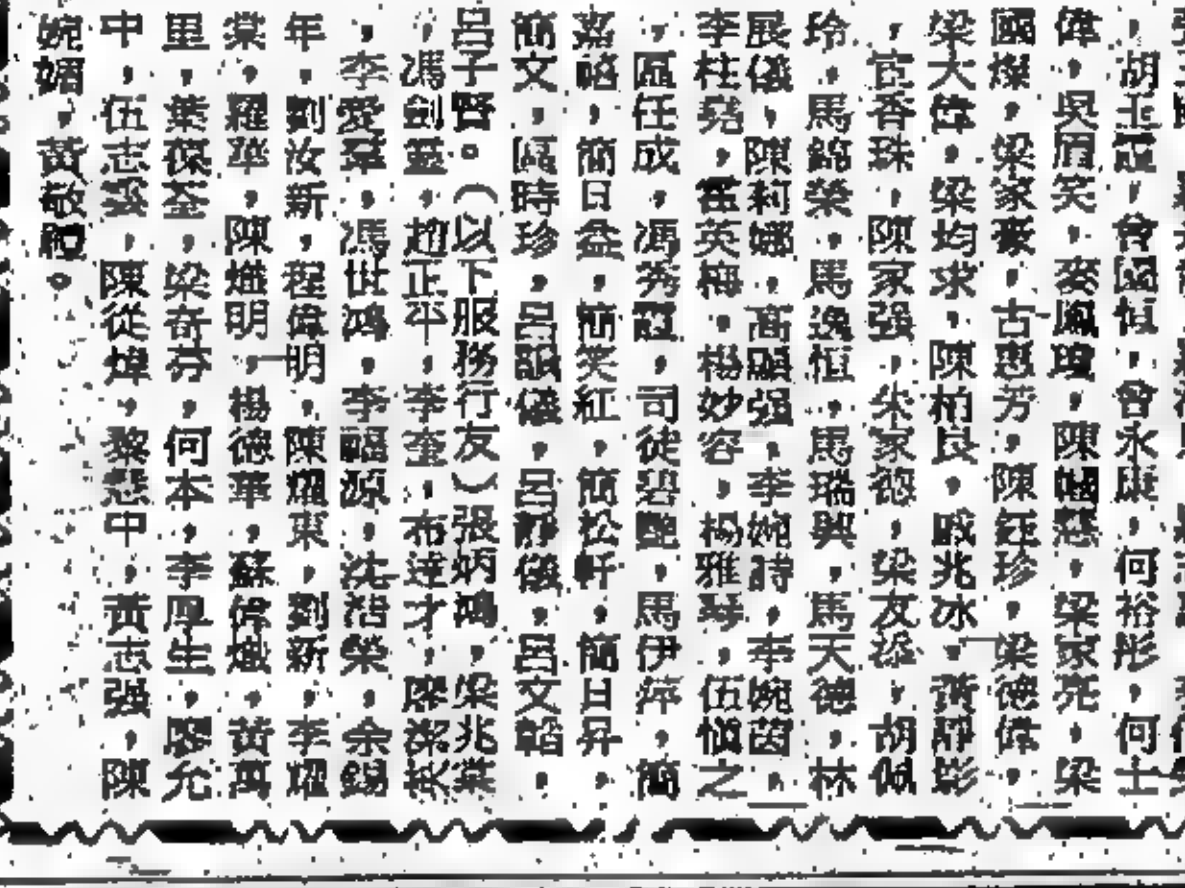 ，胡玉，曾國恒，曾永康，何裕彤，何士
偉，吳眉笑，麥鳳瓊，陳嘓慈，梁家亮，梁
國燦，梁家豪，古惠芳，陳鈺珍，梁德偉，
梁大偉，梁均求，陳柏良，戚兆冰，黃靜彭
，官香珠，陳家强，朱家德，梁友添，胡佩
玲，馬錦榮，馬逸恒，馬瑞興，馬天德，林
展儀，陳莉娜，高顯强，李婉詩，李婉茵，
李柱堯，崔英梅，楊妙容，楊雅琴，伍愼之
，區任成，馮秀，司徒碧艷，馬伊萍，簡
嘉略，簡日益，簡笑紅，簡松軒，簡日昇，
簡文，區時珍，呂韻儀，呂靜儀，呂文韜，
呂子賢。（以下服務行友）張炳鴻，梁兆棠
，馮劍，趙正平，李奎，布達才，陳潔英
，李愛羣，馮世鴻，李福源，沈浩榮，余錫
年，劉汝新，程偉明，陳耀東，劉新，李耀
棠，羅華，陳熾明，楊德華，蘇偉熾，黃萬
里，葉葆荃，梁奇芬，何本，李厚生，廖允
中，伍志，陳從煒，黎慧中，黃志强，陳
婉媚，黃敬。